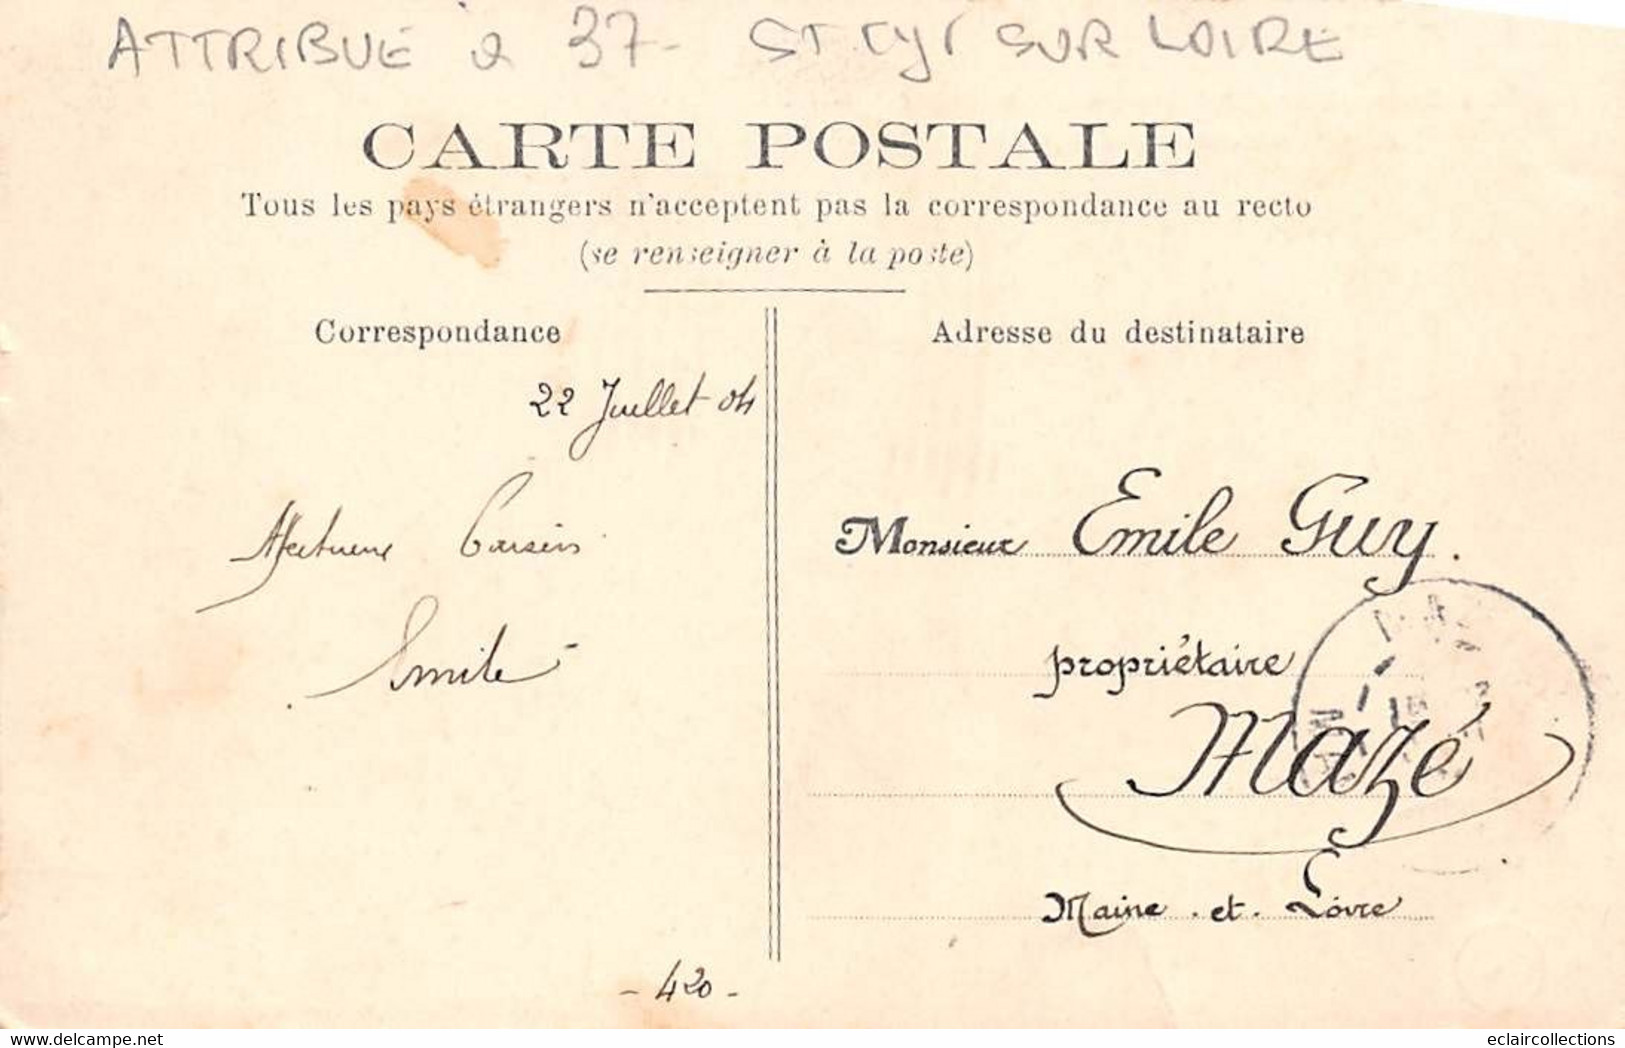 ATTRIBUÉ à 37 - ST Cyr SUR LOIRE
CARTE POSTALE
Tous les pays étrangers n'acceptent pas la correspondance au recto
(se renseigner à la poste)
Correspondance
22 Juillet 04
Affectueux baisers
Emile
- 420 -
Adresse du destinataire
Monsieur Emile Guy.
propriétaire
Mazé
Maine - et - Loire
eclaircollections